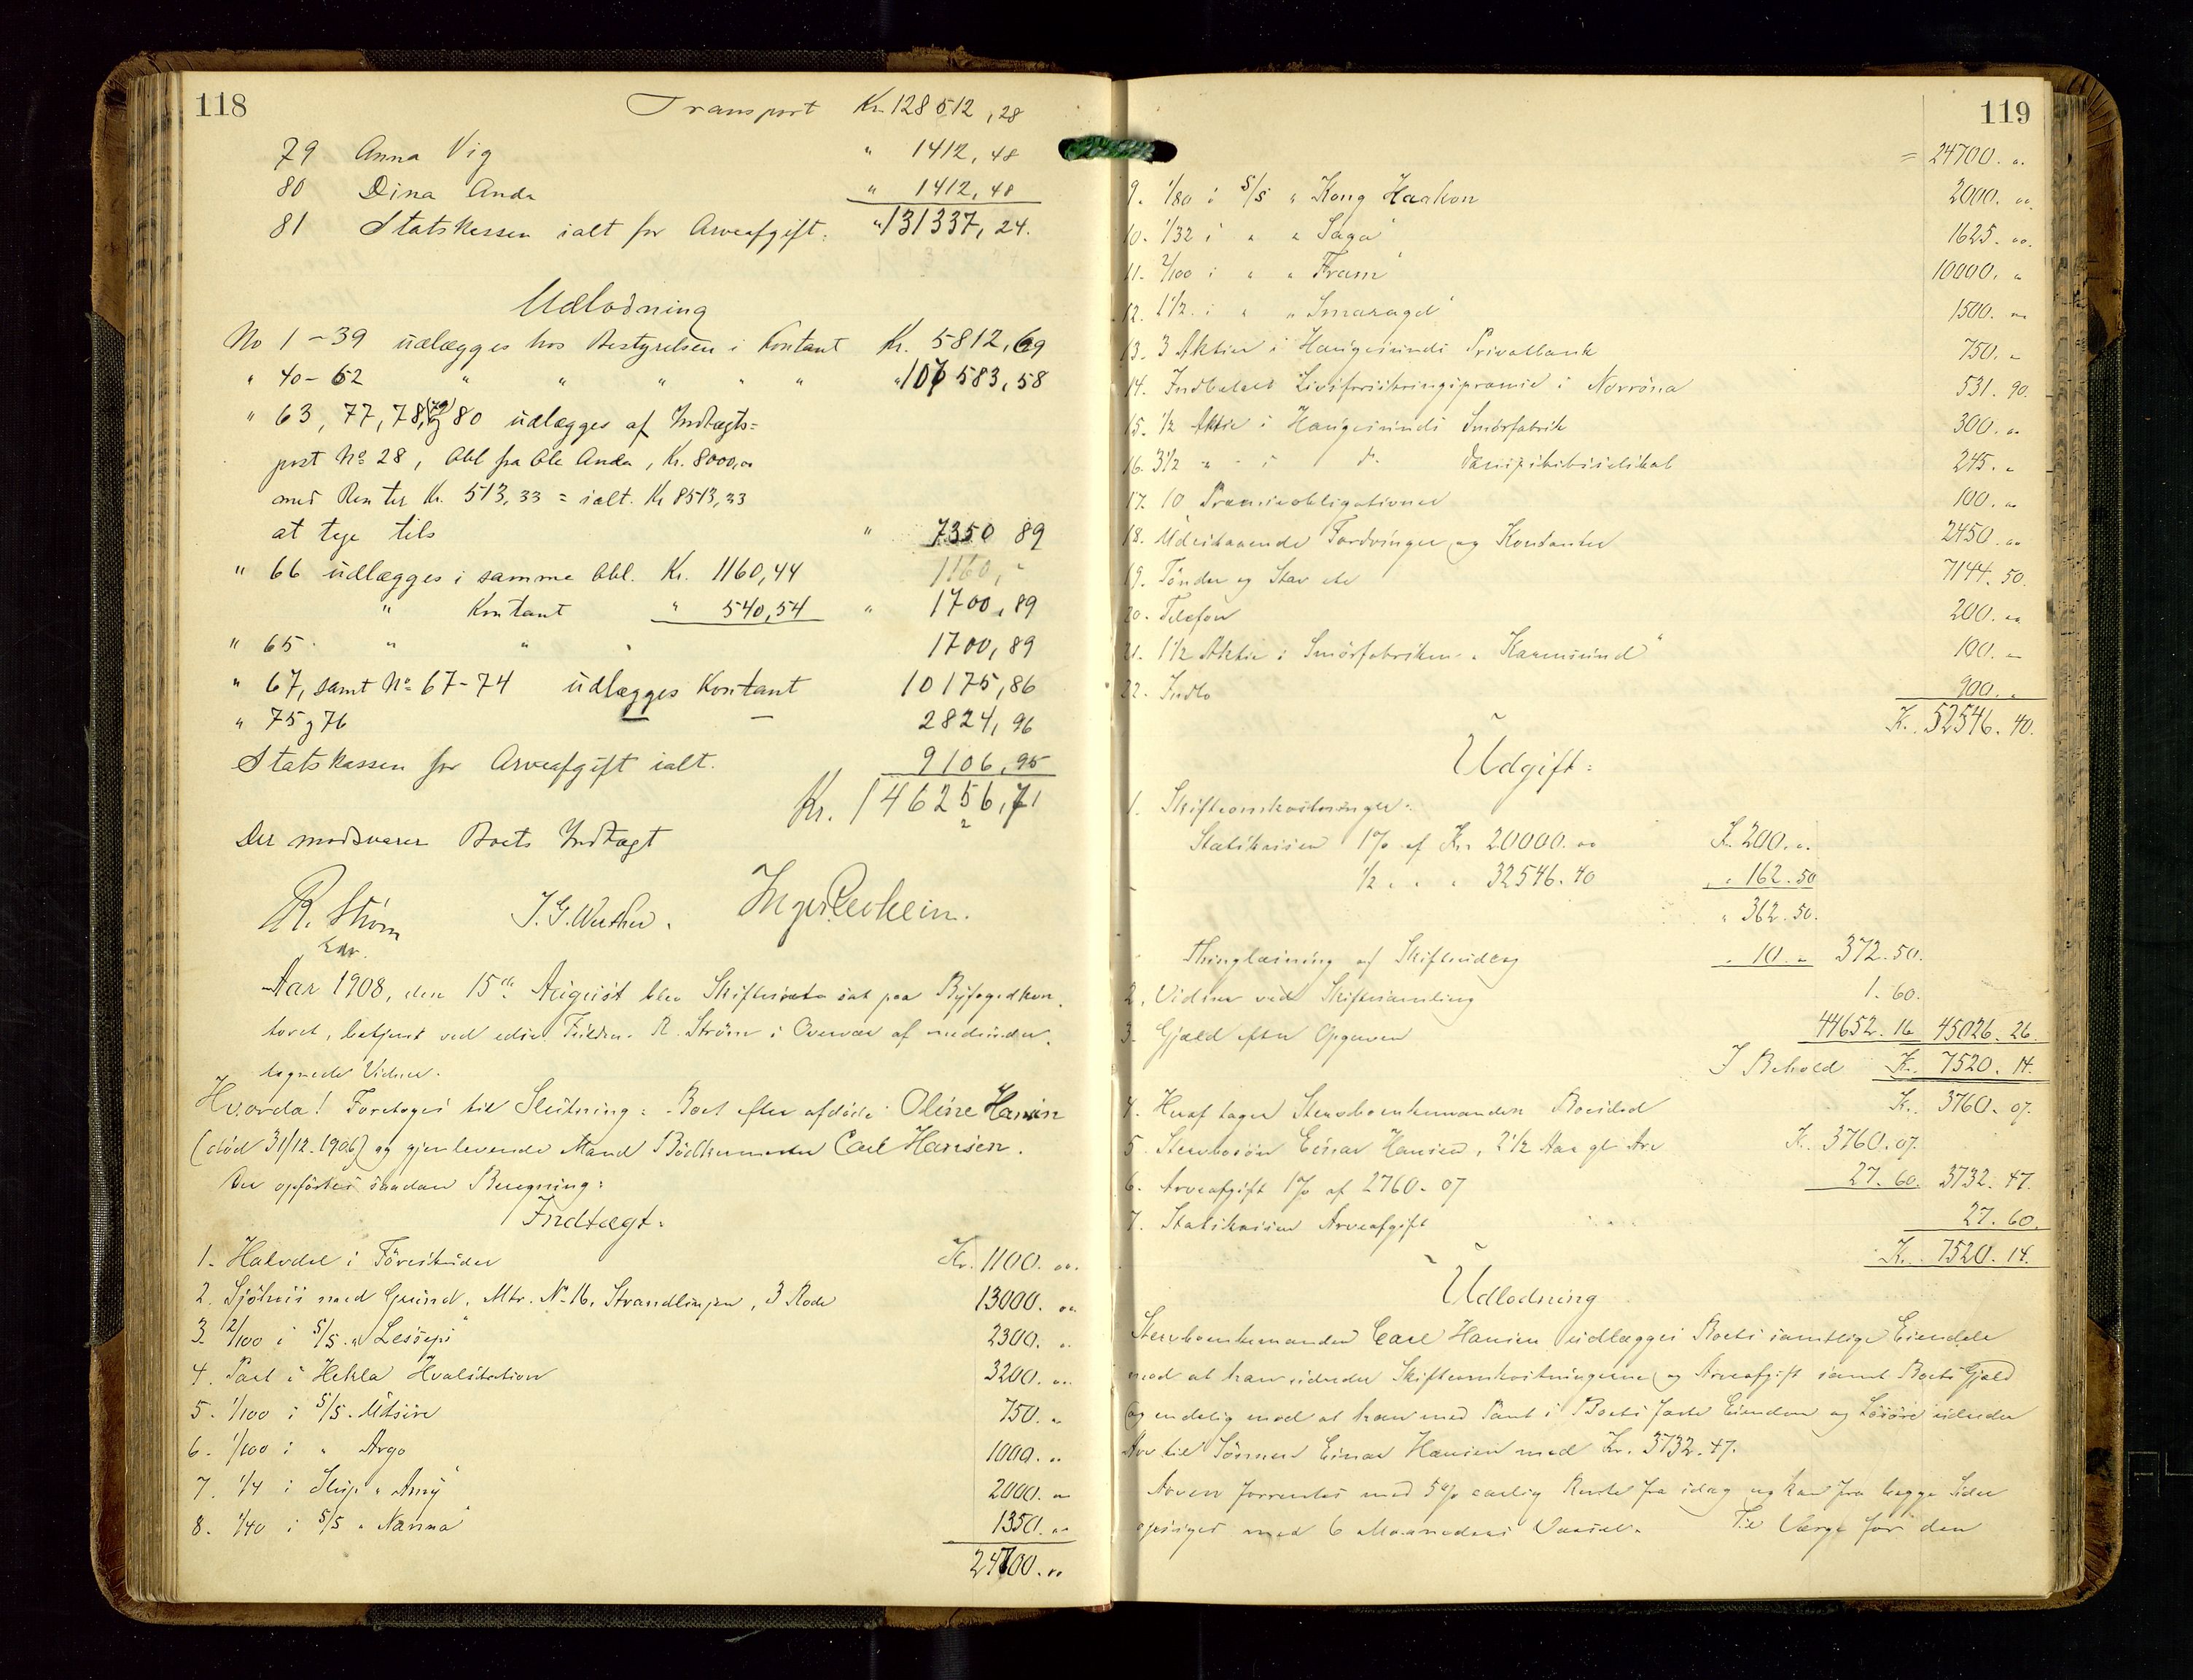 118
Transport Kr. 128512,28
79 Anna Vig " 1412,48
80 Dina Anda " 1412,48
81 Statskassen ialt for Arveafgift. " 131337,24.
Udlodning
No 1-39 udlægges hos Bestyrelsen i Kontant Kr. 5812,69
" 40-62 " " " " " " 107583,58
" 63, 77, 78, (79) og 80 udlægges af Indtægts=
post No 28, Obl fra Ole Anda, Kr. 8000,00
med Renter Kr. 513,33 = ialt. Kr 8513,33
at tage tils " 7350 89
" 66 udlægges i samme Obl. Kr. 1160,44
" Kontant " 540,54 " 1700,89
" 65 " " " 1700,89
" 67, samt No 67-74 udlægges Kontant 10175,86
" 75 og 76 — — 2824,96
Statskassen for Arveafgift ialt. 9106,95
Kr. 146256,71
Der modsvarer Boets Indtægt
R. Strøm
Edv.
J. G. Werther.
Aar 1908, den 15de August blev Skifteret sat paa Byfogedkon-
toret, betjent ved edsv. Fuldm. R. Strøm i Overvær af undrteg-
tegnede Vidner.
Hvorda! Foretoges til Slutning: Boet efter afdøde Oline Hansen
(død 31/12-1906) og gjenlevende Mand Bødkermester Carl Hansen.
Der opførtes saadan Beregning:
Indtægt:
1. Halvdel i Kr. 1100. oo.
2. Sjøhus med Grund. Mtr. No 16, Strandlinjen, 3 Rode 13000. oo
3. 2/100 i S/S. "Lesseps" 2300. "
4. Part i Hekla Hvalstation 3200. oo
5. 1/100 i S/S. Utsire 750. "
6. 1/100 i " Argo 1000. "
7. 1/4 i Slup "Amy" 2000. "
8. 1/40 i S/S "Nanna" 1350. "
24700. oo
119
= 24700. "
9. 1/80 i S/S "Kong Haakon 2000. oo.
10. 1/32 i " " Saga" 1625. oo.
11. 2/100 i " " Fram" 10000. "
12. 1 1/2 i " " Smaragd" 1500. "
13. 3 Aktier i Haugesunds Privatbank 750. "
14. Indbetalt Livsforsikringspræmie i Norrøna 531. 90.
15. 1/2 Aktie i Haugesunds Smørfabrik 300. "
16. 3 1/2 " - i do. Dampskibsselskab 245. "
17. 10 Præmieobligationer 100. "
18. Udestaaende Fordringer og Kontanter 2450. oo
19. Tønder og Stav etc 7144. 50.
20. Telefon 200. oo
21. 1 1/2 Aktie i Smørfabriken "Karmsund" 100. —
22. Indbo 900. "
K. 52546. 40.
Udgift:
1. Skifteomkostninger:
Statskassen 1% af Kr. 20000. oo K. 200. "
1/2 " " " 32546. 40 " 162. 50
" 362. 50.
Thinglæsning af Skifteudlæg " 10. " 372. 50.
2. Vidner ved Skiftesamling 1. 60.
3. Gjæld efter Opgaven 44652. 16 45026. 26
I Behold K. 7520. 14.
4. Heraf tager Stervboenkemanden Boeslod K. 3760. 07.
5. Stervbosøn Einar Hansen, 2 1/2 Aar gl. Arv K. 3760. 07.
6. Arveafgift 1% af 2760. 07 27. 60. 3732. 47.
7. Statskassen Arveafgift 27. 60.
K. 7520. 14.
Udlodning
Stervboenkemanden Carl Hansen udlægges Boets samtlige Eiendele
mod at han udreder Skifteomkostningerne og Arveafgift samt Boets Gjæld
og endelig mod at han med Pant i Boets faste Eiendom og Løsøre udreder
Arv til Sønnen Einar Hansen med Kr. 3732. 47.
Arven forrentes med 5% aarlig Rente fra idag og kan fra begge Sider
opsiges med 6 Maaneders Varsel. Til Værge for den